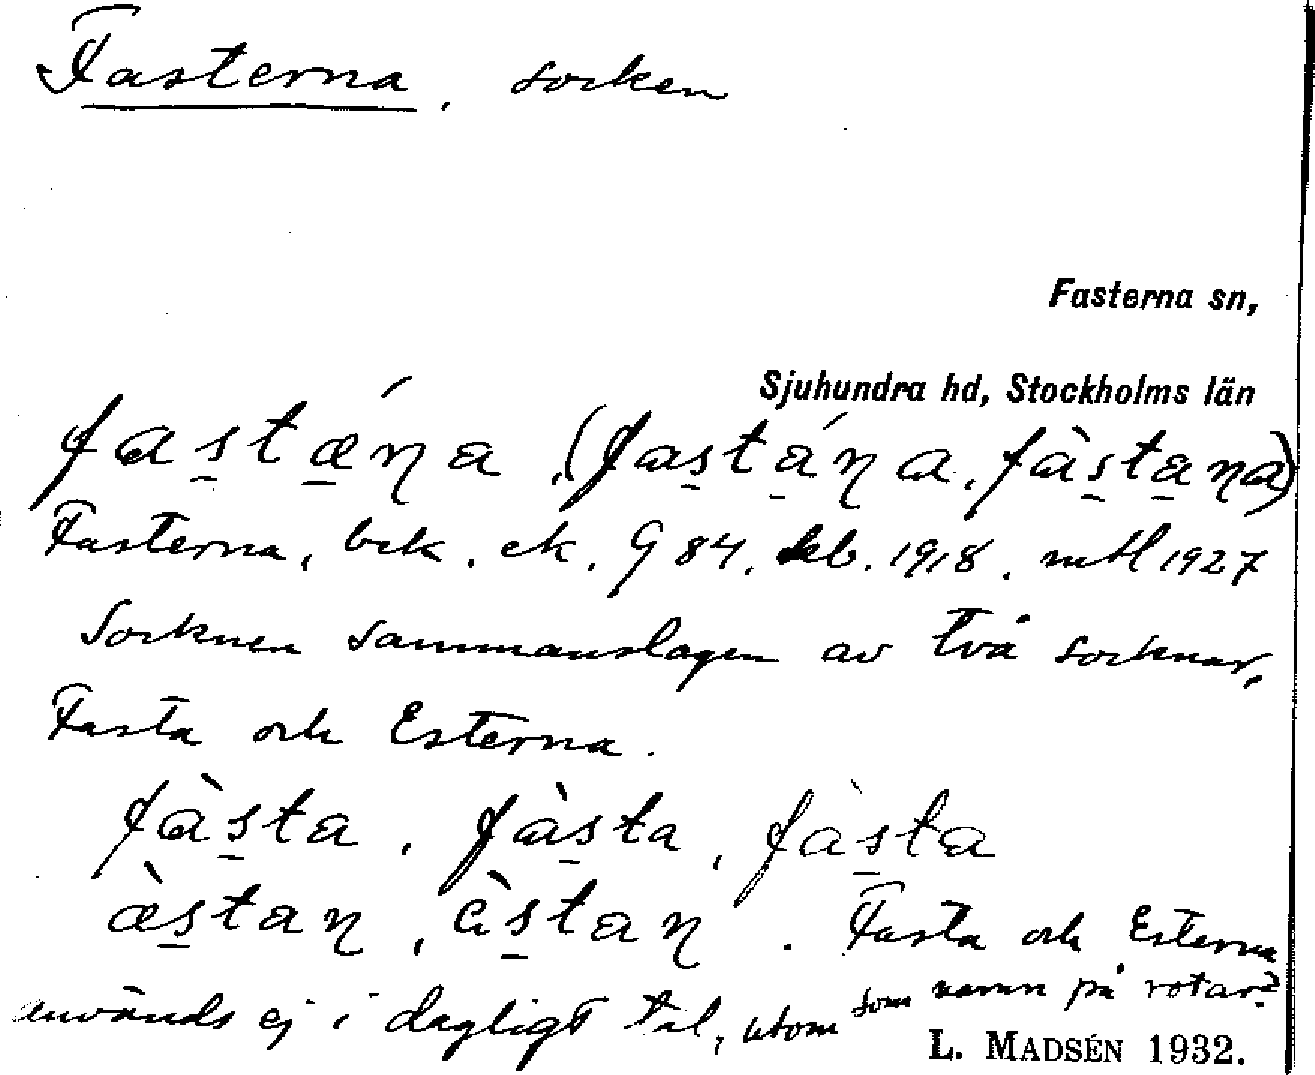 Fasterna, socken
Fasterna sn,
Sjuhundra hd, Stockholms län
fas̱tǽ̱ɳa, (fas̱tá̱ɳa, fàs̱ta̱ɳa)
Fasterna, bek. ek. G 84, kb. 1918. mtl 1927
Socknen sammanslagen av två socknar,
Fasta och Esterna.
fàs̱ta, fàs̱ta, fàs̱ta
æ̀s̱taɳ, ès̱taɳ. Fasta och Esterna
används ej i dagligt tal, utom som namn på rotar?
L. MADSÉN 1932.